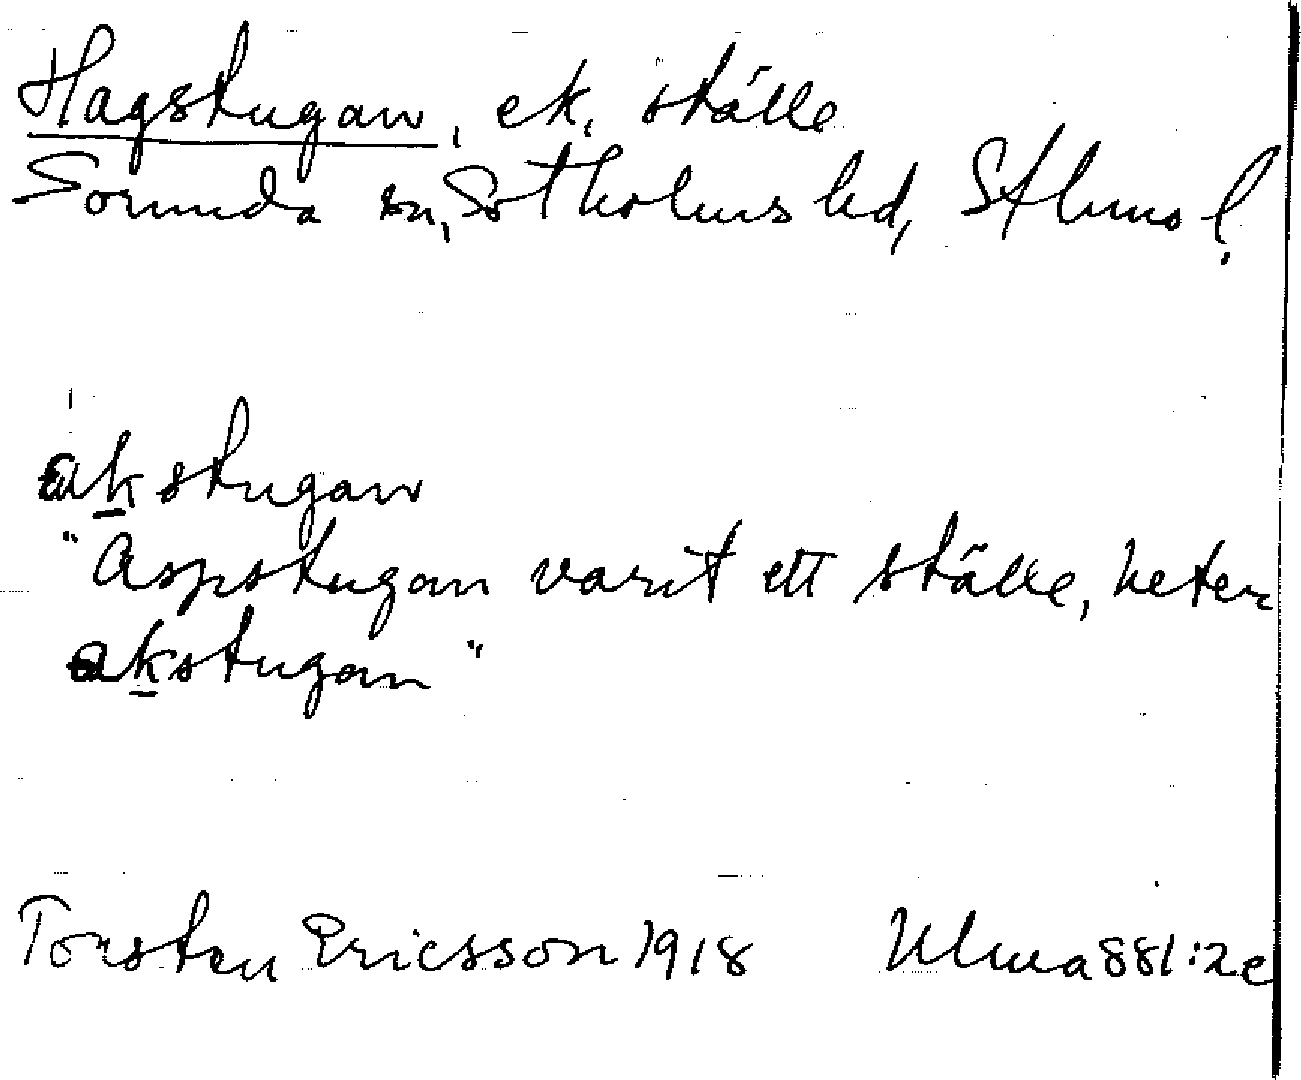 Hagstugan, ek. ställe
Sorunda sn, Sotholms hd, Sthms l.
akstugan
"Aspstugan varit ett ställe, heter
akstugan"
Torsten Ericsson 1918 Ulma 881:2e